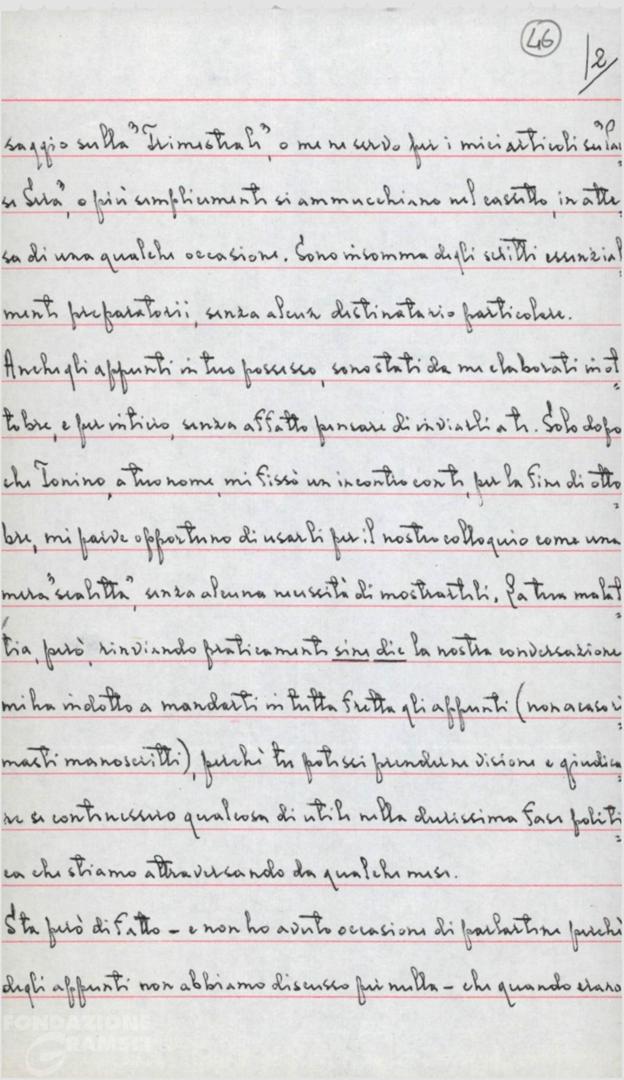 46
/2
saggio sulla "Trimestrale", o me ne servo per i miei articoli su "Pae=
se Sera", o più semplicemente si ammucchiano nel cassetto, in atte=
sa di una qualche occasione. Sono insomma degli scritti essenzial=
mente preparatorii, senza alcun destinatario particolare.
Anche gli appunti in tuo possesso, sono stati da me elaborati in ot=
tobre, e per intiero, senza affatto pensare di inviarli a te. Solo dopo
che Tonino, a tuo nome, mi fissò un incontro con te, per la fine di otto=
bre, mi parve opportuno di usarli per il nostro colloquio come una
mera "scaletta", senza alcuna necessità di mostrarteli. La tua malat=
tia, però, rinviando praticamente sine die la nostra conversazione
mi ha indotto a mandarti in tutta fretta gli appunti (non a caso ri
masti manoscritti), perchè tu potessi prenderne visione e giudica=
re se contenessero qualcosa di utile nella durissima fase politi=
ca che stiamo attraversando da qualche mese.
Sta però di fatto - e non ho avuto occasione di parlartene perchè
degli appunti non abbiamo discusso per nulla - che quando erano
FONDAZIONE
GRAMSCI